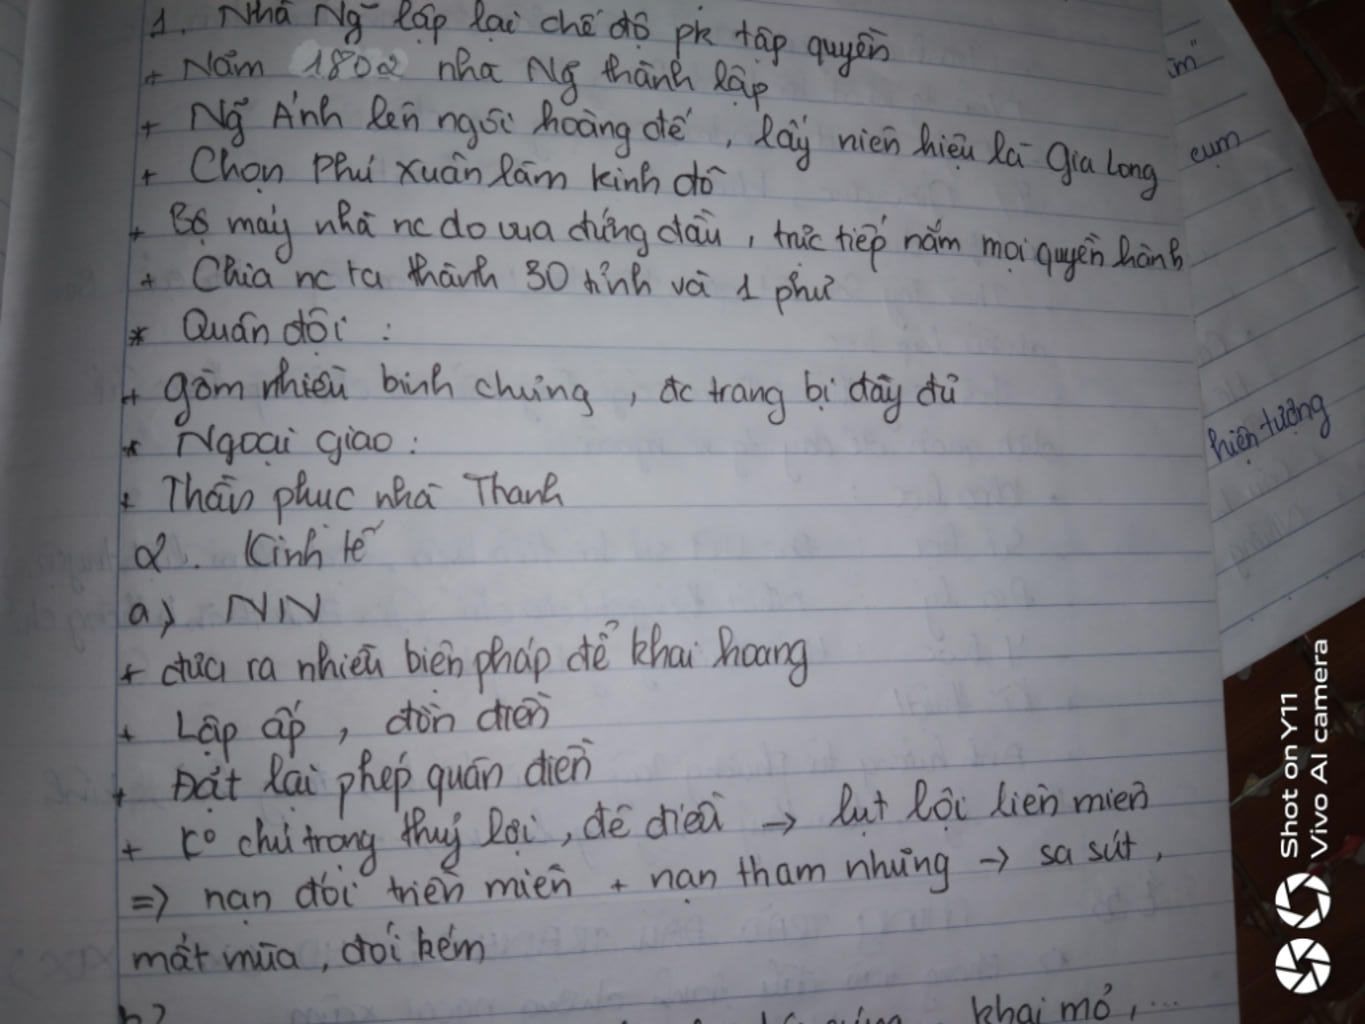 1. Nhà Ng~ lập lại chế độ pk tập quyền
+ Năm 1802 nhà Ng~ thành lập
+ Ng~ Ánh lên ngôi hoàng đế, lấy niên hiệu là Gia Long
+ Chọn Phú Xuân làm kinh đô
+ Bộ máy nhà nc do vua đứng đầu, trực tiếp nắm mọi quyền hành
+ Chia nc ta thành 30 tỉnh và 1 phủ
* Quân đội :
+ gồm nhiều binh chủng, đc trang bị đầy đủ
* Ngoại giao :
+ Thần phục nhà Thanh
2. Kinh tế
a) NN
+ đưa ra nhiều biện pháp để khai hoang
+ Lập ấp, đồn điền
+ Đặt lại phép quân điền
+ K° chú trọng thuỷ lợi, đê điều → lụt lội liên miên
=> nạn đói triền miên + nạn tham nhũng → sa sút,
mất mùa, đói kém
b)
khai mỏ,...
ím"
cụm
hiện tượng
Shot on Y11
Vivo AI camera